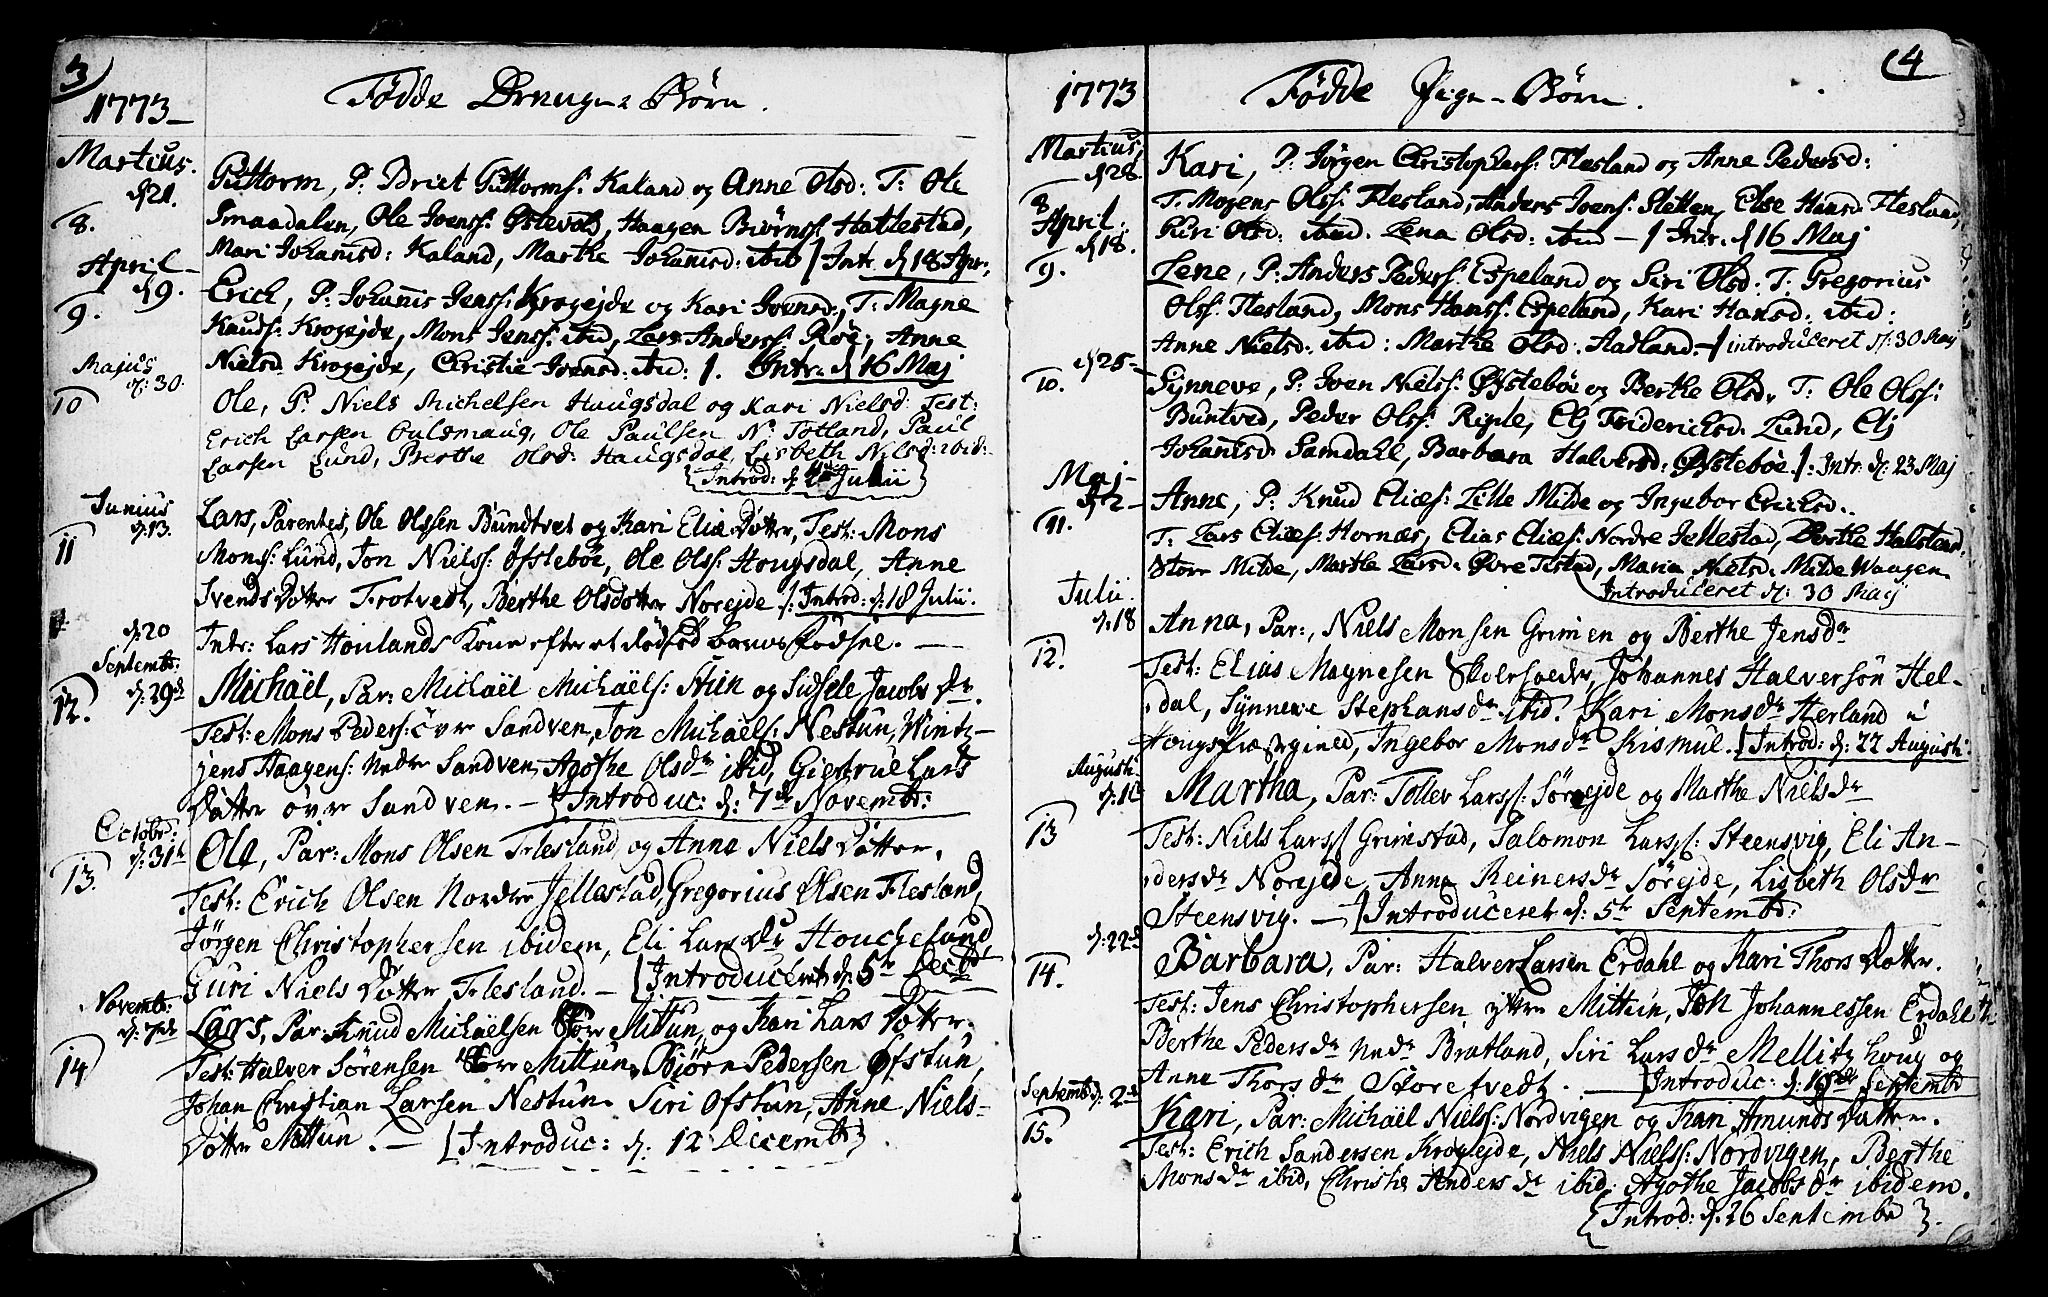 3)
1773
Födde Drenge-Börn.
Martius.
d 21.
8.
Guttorm, P. Briet Guttormss: Kaland og Anne Olsd: T: Ole
Smaadalen, Ole Ivenss: Østevold, Haagen Biörnss Hattestad,
Mari Johansd: Kaland, Marthe Johansd: ibid / Intr. d 18 Apr:
April
d 9.
9.
Erich, P. Johanis Jenss: Krogejde og Kari Ivensd, T: Magne
Knuds: Krogejde, Mons Jenss: ibid, Lars Anderss: Röe, Anne
Nielsd Krogejde, Christie Ivensd: ibid: /. Intr. d 16 Maj
Majus
d: 30.
10
Ole, P. Niels Michelsen Haugsdal og Kari Nielsd: Test:
Erich Larsen, Ole Paulsen N: Totland, Paul
Larsen Lund, Berthe Olsd: Haugsdal, Lisbeth Nilsd: ibid:
{Introd: d: Julii}
Junius
d: 13.
11
Lars, Parentes, Ole Olssen Bundtvet og Kari Eliæ Dötter, Test: Mons
Monss: Lund, Jon Nielss: Öfstebøe, Ole Olss: Hougsdal, Anne
Svends Dötter Trotvedt, Berthe Olsdötter Norejde /: Introd: d: 18 Julii.
d: 20
Intr: Lars Houlands Kone efter et dødfød Barns Födsel.
Septembr:
d: 29de
12.
Michäel, Par: Michäel Michäels: Stien og Sidsele Jacobs dr.
Test: Mons Peders: övre Sandven, Jon Michäels: Nestun, Wintz-
jens Haagens: Nedre Sandven, Agothe Olsdr ibid, Giertrue Lars
Dötter övre Sandven. — {Introduc: d: 7de Novembr:
Octobr:
d: 31te
13.
Ole, Par: Mons Olsen Flesland og Anna Niels Dötter.
Test: Erich Olsen Nordre Jellestad, Gregorius Olsen Flesland,
Jörgen Christophersen ibidem, Eli Lars Dr Houcheland,
Guri Niels Dötter Flesland. — {Introduceret d: 5te Decbr
Novembr:
d: 7de
14
Lars, Par: Knud Michäelsen Store Mittun, og Kari Lars Dötter.
Test: Halver Sörensen Store Mittun, Bjørn Pedersen Ofstun,
Johan Christian Larsen Nestun, Siri Ofstun, Anne Niels-
Dötter Mittun. — {Introduc: d: 12 Decembr}.
(4
1773
Födde Pige-Börn.
Martius,
d 28
8
Kari, P: Jörgen Christophers: Flesland og Anne Pedersd:
T. Mogens Olss: Flesland, Anders Ivens: Sletten, Else Hansd: Flesland,
Guri Olsd: ibid. Lena Olsd: ibid — / Intr. d 16 Maj
April
d 18.
9.
Lene, P: Anders Pederss: Espeland og Siri Olsd: T: Gregorius
Olss: Flesland, Mons Hanss: Espeland, Kari Hansd: ibid:
Anne Nielsd: ibid: Marthe Olsd: Aadland. / introduceret d: 30 Maj
d 25
10.
Synneve, P: Iven Nielss: Østebøe og Berthe Olsd, T: Ole Olss:
Buntved, Peder Olss: Riple, Elj Friderichsd: Lund, Elj
Johansd: Samdahl, Barbara Halversd: Østebøe /: Intr. d: 23 Maj
Maj
d 2
11.
Anne, P: Knud Eliæs: Lille Milde og Ingebor Erichsd.
T: Lars Eliæs: Hornæs, Elias Eliæs: Nordre Jellestad, Berthe Halstensd:
Store Milde, Marthe Larsd: Øvre Titlestad, Maria Nielsd: Milde Waagen
Introduceret d: 30 Maj
Julii.
d: 18
12.
Anna, Par:, Niels Monsen Grimen og Berthe Jensdr
Test: Elias Magnesen Skoleholder, Johannes Halversön Hel-
dal, Synneve Stephansdr ibid. Kari Monsdr Herland i
Hougs Præstegield, Ingebor Monsdr Kismul. {Introd: d: 22 Augusti
Augusti
d: 1
13
Martha, Par: Tollev Larss: Sörejde og Marthe Nielsdr
Test: Niels Larss: Grimstad, Salomon Larss: Steensvig, Eli An-
dersdr Norejde, Anna Reinersdr Sörejde, Lisbeth Olsdr
Steensvig. — {Introduceret d: 5te Septembr:
d: 22de
14.
Barbara, Par: Halver Larsen Erdahl og Kari Thors Dötter.
Test: Jens Christophersen ytre Mittun, Jon Johannessen Erdahl
Berthe Pedersdr Nedr Bratland, Siri Larsdr Mellinghoug og
Anna Thorsdr Storetvedt. — {Introduc: d: Septembr
Septembr d: 2de
15.
Kari, Par: Michäel Nielss: Nordvigen og Kari Amunds Dötter.
Test: Erich Sandersen Krogejde, Niels Nielss: Nordvigen, Berthe
Monsdr ibid, Christie Andersdr ibid: Agothe Jacobsdr ibidem.
{Introd: d: 26 Septembr}.